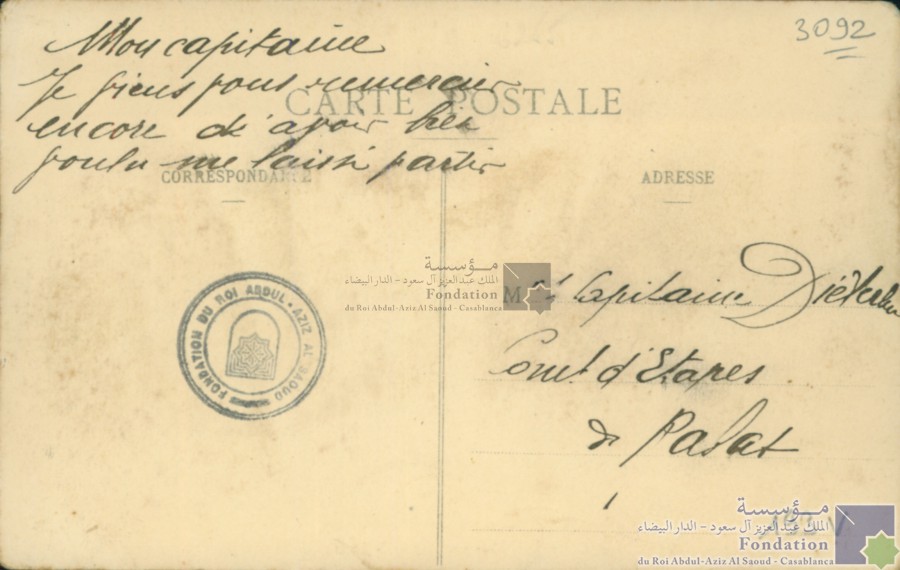 3092
Mon capitaine
Je viens vous remercier
encore d'avoir bien
voulu me laissé partir
CARTE POSTALE
CORRESPONDANCE
ADRESSE
FONDATION DU ROI ABDUL-AZIZ AL SAOUD
مؤسسة
الملك عبد العزيز آل سعود - الدار البيضاء
Fondation
du Roi Abdul-Aziz Al Saoud - Casablanca
M le Capitaine
Comt d'Etapes
de Rabat
مؤسسة
الملك عبد العزيز آل سعود - الدار البيضاء
Fondation
du Roi Abdul-Aziz Al Saoud - Casablanca